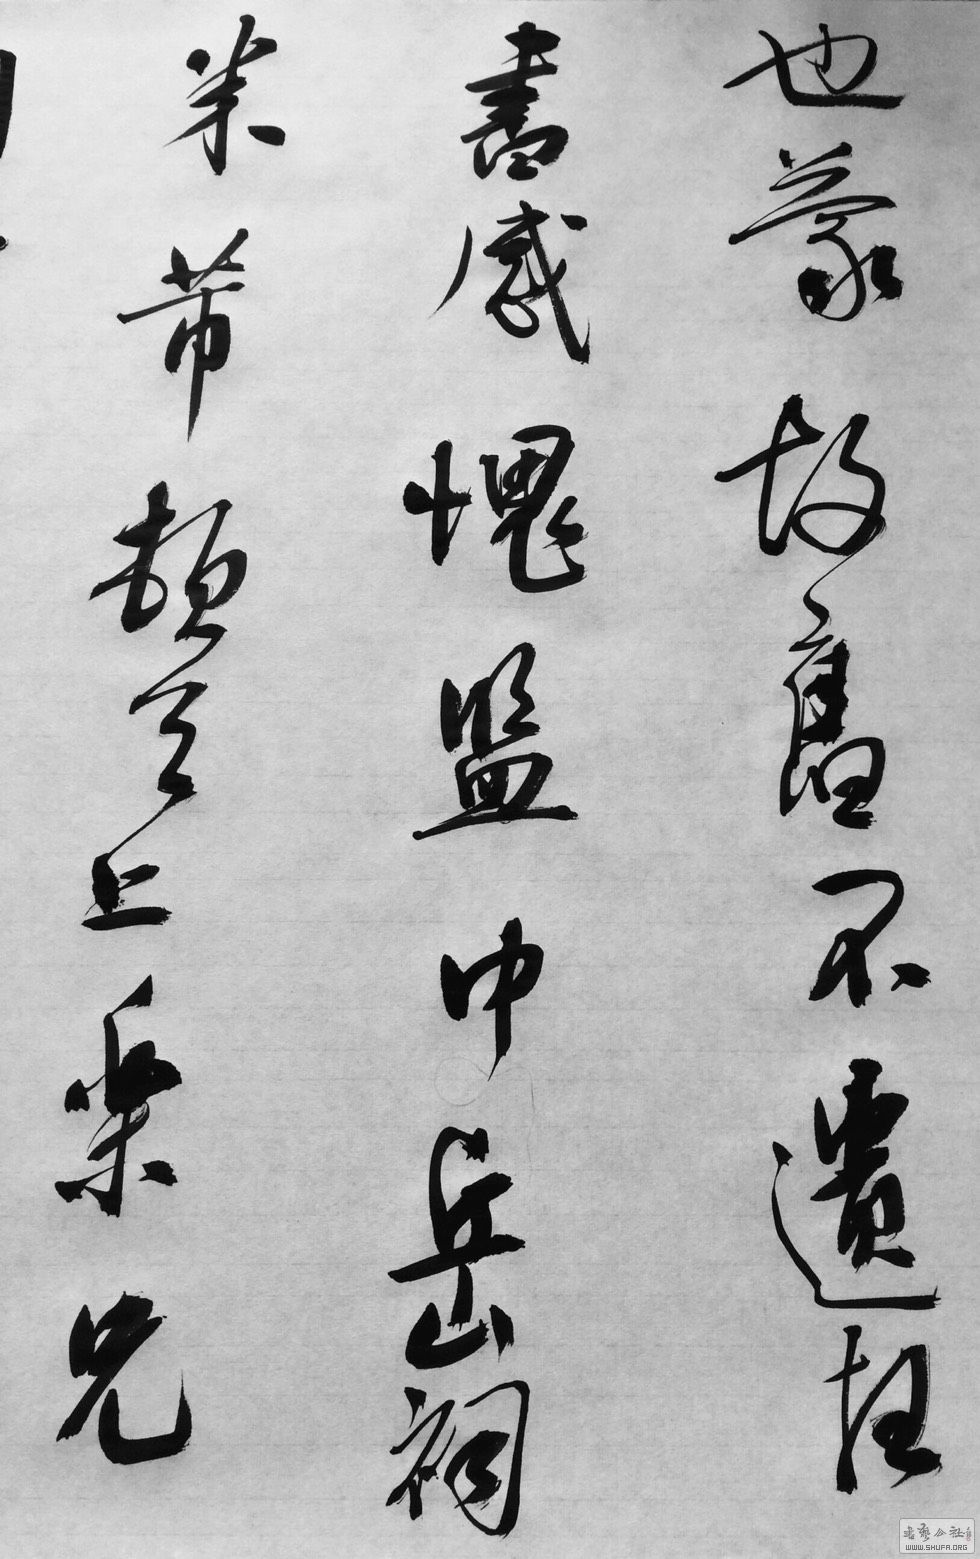 也蒙故舊不遺枉
書感愧監中岳祠
米芾頓首上樂兄
WWW.SHUFA.ORG